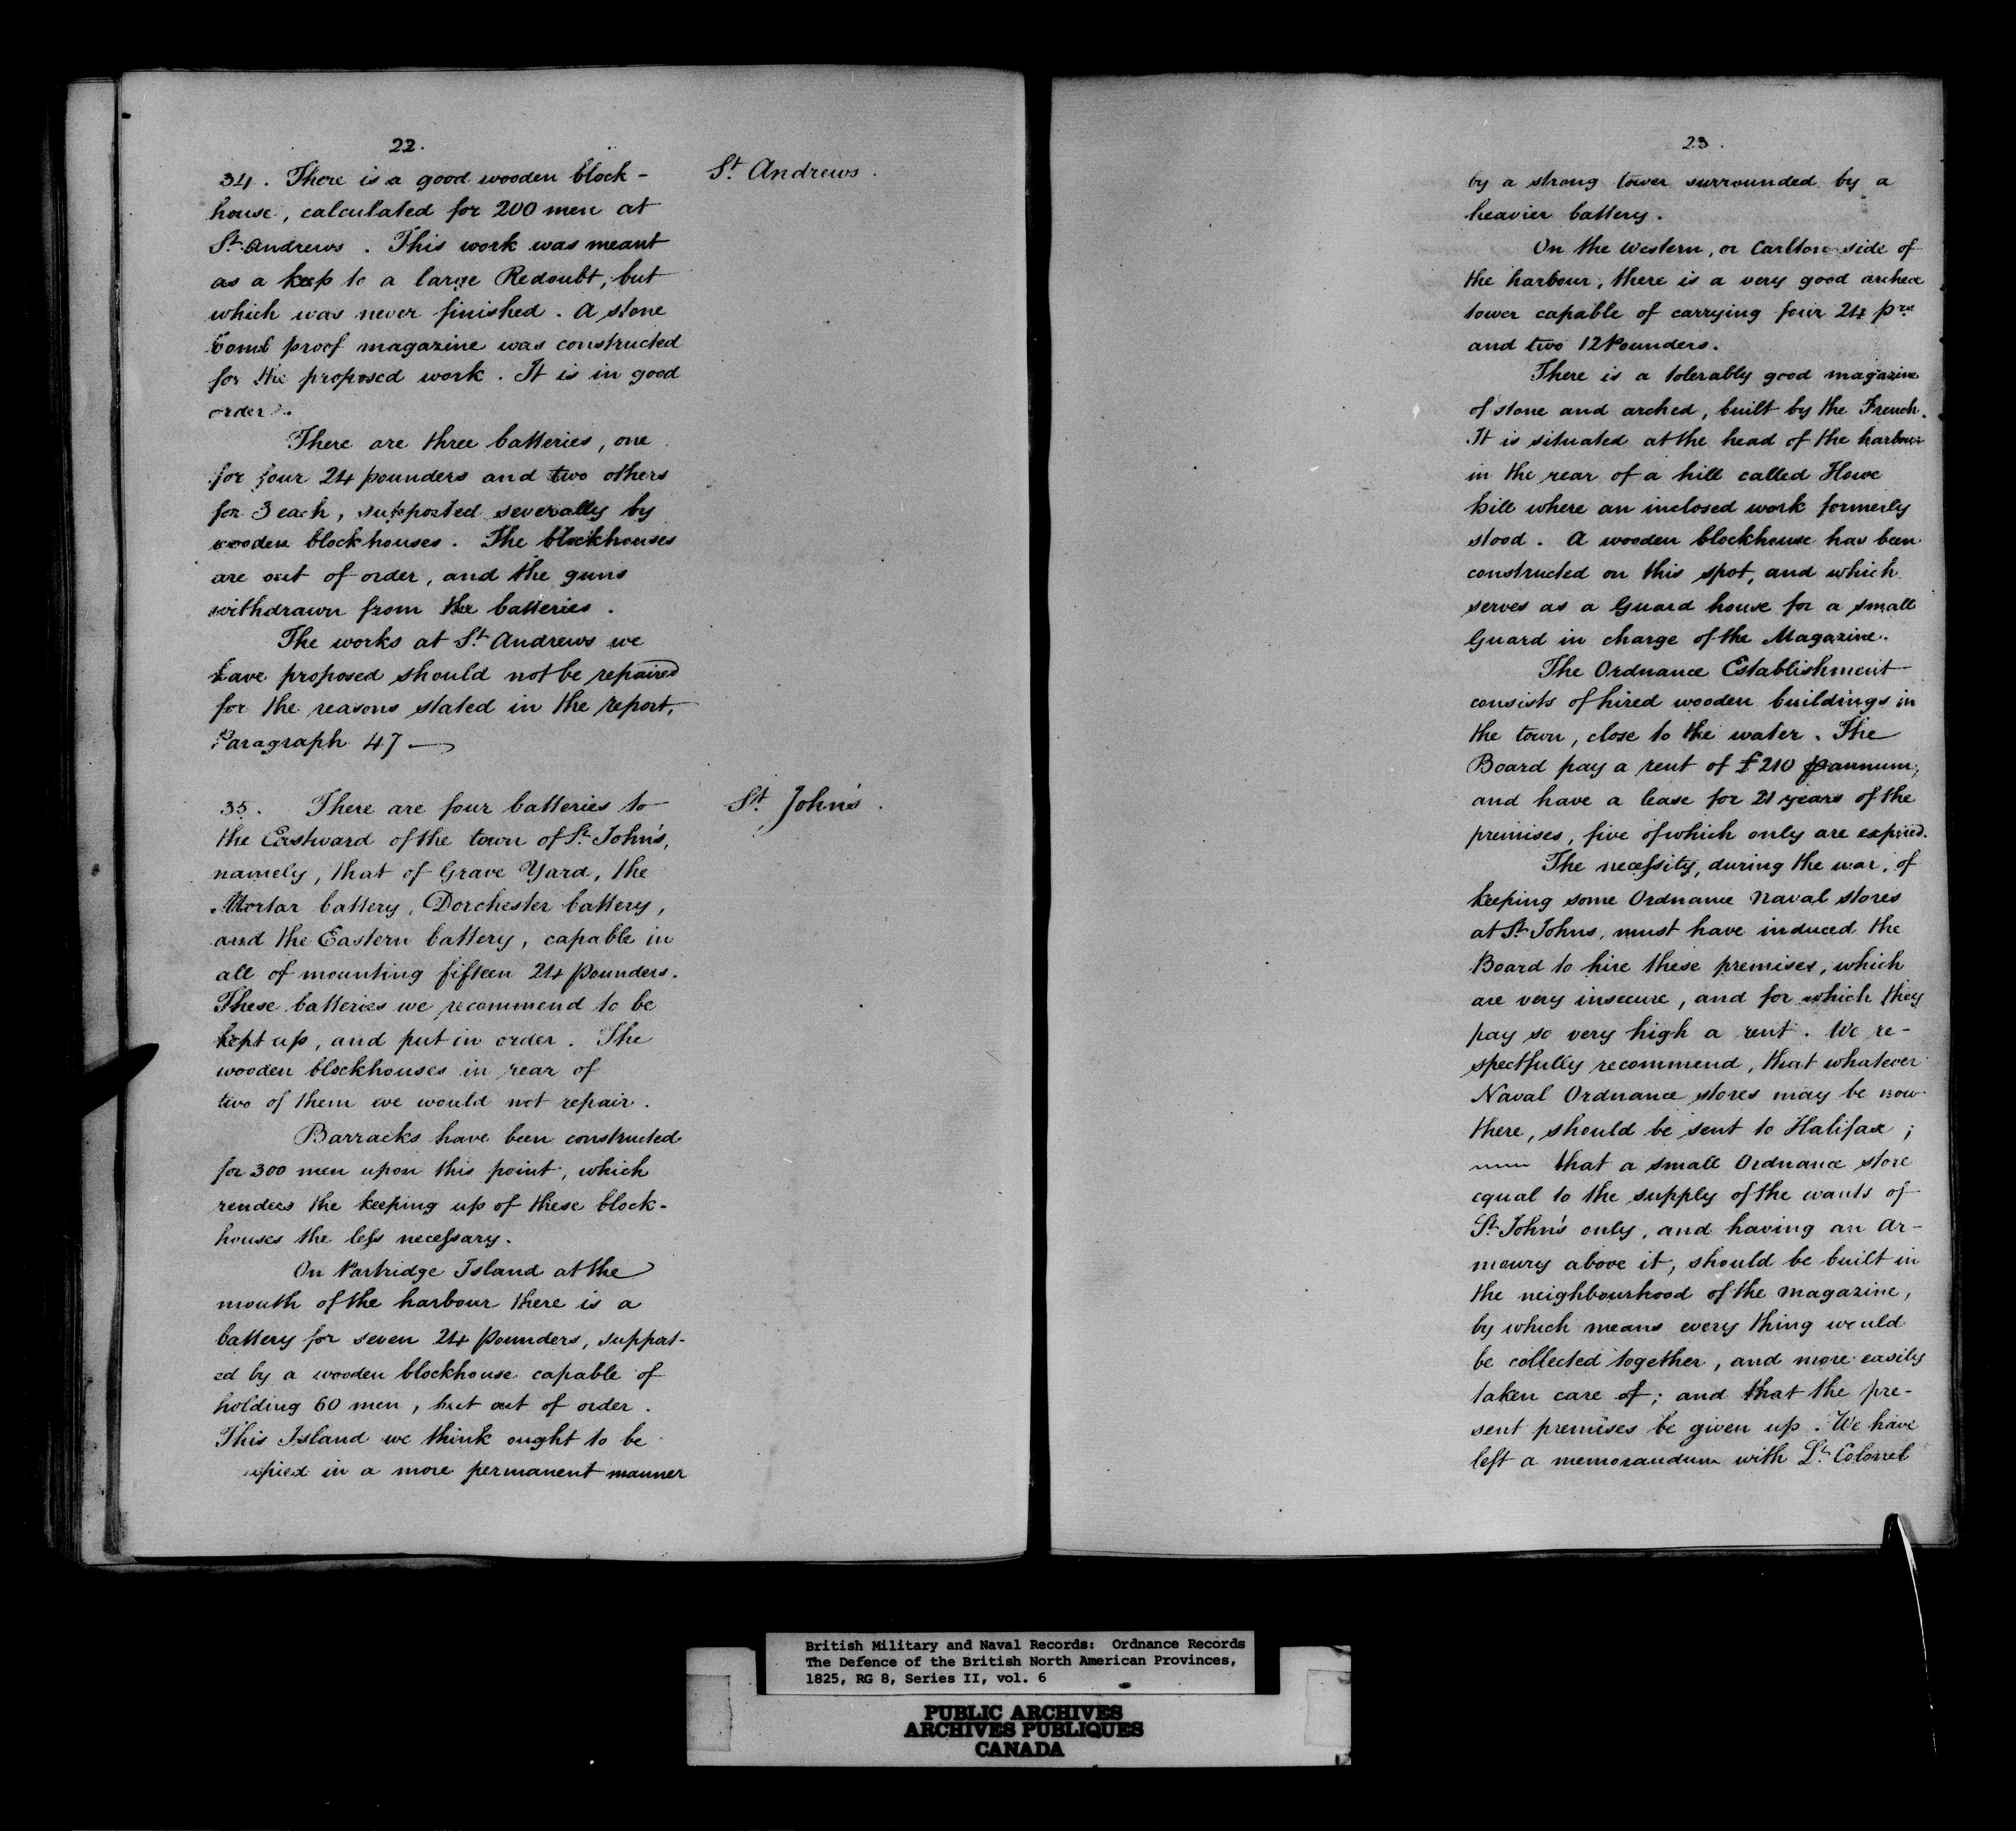 22.
34. There is a good wooden block-
house, calculated for 200 men at
St. Andrews. This work was meant
as a keep to a large Redoubt, but
which was never finished. A stone
bomb proof magazine was constructed
for the proposed work. It is in good
order.
There are three batteries, one
for four 24 pounders and two others
for 3 each, supported severally by
wooden blockhouses. The blockhouses
are out of order, and the guns
withdrawn from the batteries.
The works at St. Andrews we
have proposed should not be repaired
for the reasons stated in the report,
Paragraph 47 —
St. Andrews.
35. There are four batteries to
the Eastward of the town of St. John's,
namely, that of Grave Yard, the
Mortar battery, Dorchester battery,
and the Eastern battery, capable in
all of mounting fifteen 24 Pounders.
These batteries we recommend to be
kept up, and put in order. The
wooden blockhouses in rear of
two of them we would not repair.
Barracks have been constructed
for 300 men upon this point, which
renders the keeping up of these block-
houses the less necessary.
On Partridge Island at the
mouth of the harbour there is a
battery for seven 24 Pounders, support-
ed by a wooden blockhouse capable of
holding 60 men, but out of order.
This Island we think ought to be
upied in a more permanent manner
St. John's.
23.
by a strong tower surrounded by a
heavier battery.
On the Western, or Carlton side of
the harbour, there is a very good arched
tower capable of carrying four 24 prs
and two 12 Pounders.
There is a tolerably good magazine
of stone and arched, built by the French.
It is situated at the head of the harbour
in the rear of a hill called Howe
hill where an inclosed work formerly
stood. A wooden blockhouse has been
constructed on this spot, and which
serves as a Guard house for a small
Guard in charge of the Magazine.
The Ordnance Establishment
consists of hired wooden buildings in
the town, close to the water. The
Board pay a rent of £210 p annum,
and have a lease for 21 years of the
premises, five of which only are expired.
The necessity, during the war, of
keeping some Ordnance Naval stores
at St. Johns, must have induced the
Board to hire these premises, which
are very insecure, and for which they
pay so very high a rent. We re-
spectfully recommend, that whatever
Naval Ordnance stores may be now
there, should be sent to Halifax;
that a small Ordnance store
equal to the supply of the wants of
St. John's only, and having an Ar-
moury above it, should be built in
the neighbourhood of the magazine,
by which means every thing would
be collected together, and more easily
taken care of; and that the pre-
sent premises be given up. We have
left a memorandum with Lt. Colonel
British Military and Naval Records: Ordnance Records
The Defence of the British North American Provinces,
1825, RG 8, Series II, vol. 6
PUBLIC ARCHIVES
ARCHIVES PUBLIQUES
CANADA